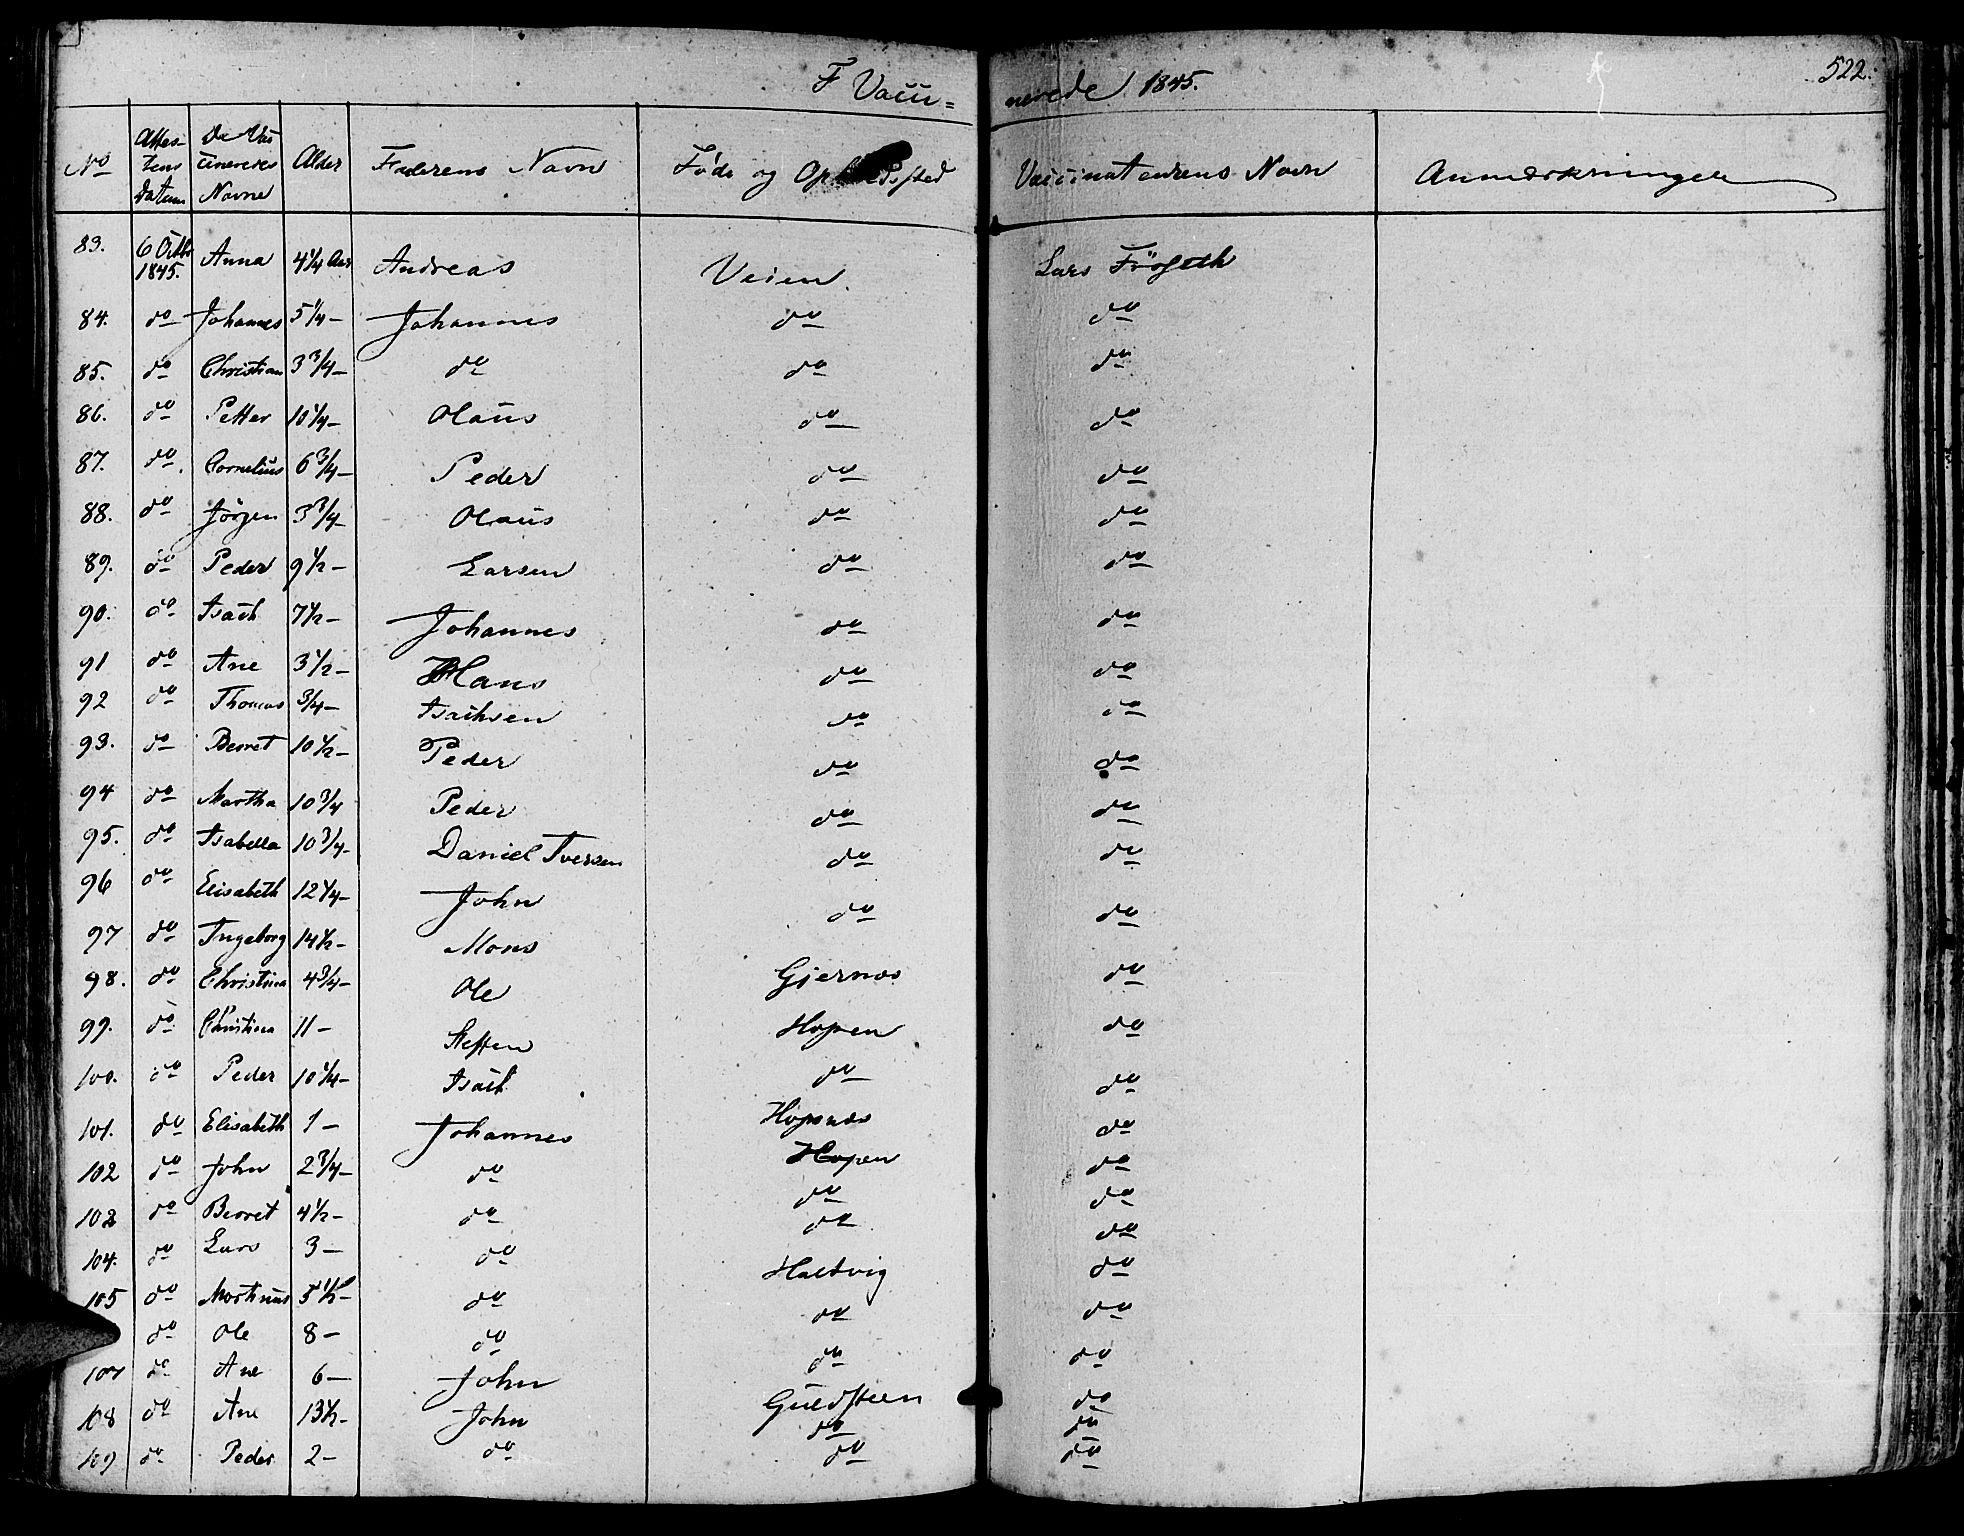 F Vacci= nerede 1845. 522.
No Attes-tens Datum De Vac cineredes Navne Alder Faderens Navn Føde og Opholdssted Vaccinateurens Navn Anmærkninger
83. 6 Octbr 1845. Anna 4 1/4 Aar Andreas Veien. Lars
84. do Johannes 5 1/4 - Johannes do do
85. do Christian 3 3/4 - do do do
86. do Petter 10 1/4 - Olaus do do
87. do. Cornelius 6 3/4 - Peder do do
88. do Jörgen 3 3/4 - Olaus do do
89. do Peder 9 1/2 - Larsen do do
90. do Isach 7 1/2 - Johannes do do
91 do Ane 3 1/2 - Hans do do
92 do Thomas 3/4 - Isachsen do do
93. do Berret 10 1/2 - Peder do do
94 do Martha 10 3/4 Peder do do
95. do Isabella 10 3/4 - Daniel Iversen do do
96 do Elisabeth 12 1/4 - John do do
97 do Ingeborg 14 1/2 - Mons
98. do Christina 4 3/4 - Ole Gjernæs do
99. do Christina 11 - Steffen Hopen do
100. do Peder 10 1/4 - Isach do do
101. do Elisabeth 1 - Johannes Hopsnæs do
102 do John 2 3/4 - do Hopen do
103 do Berret 4 1/2 - do do do
104. do Lars 3 - do do do
105 do Martinus 5 1/2 - do Haltvig do
do Ole 8 - do do do
107 do Ane 6 - John do do
108 do Ane 13 1/2 - John Guldsteen do
109 do Peder 2 - do do do
do do